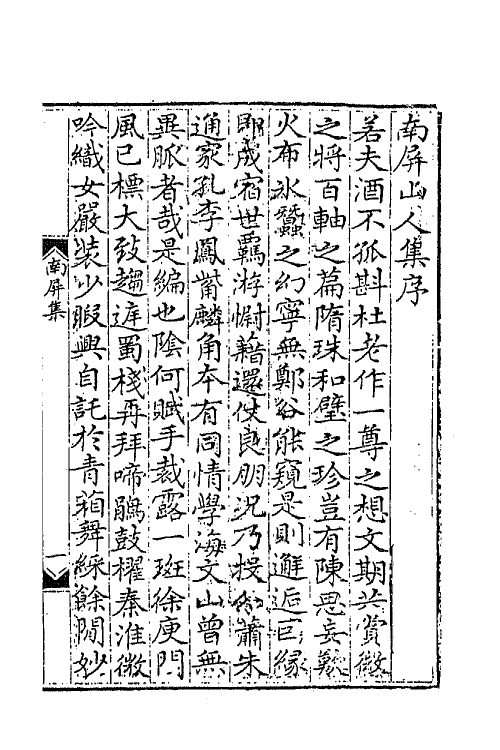 南屏山人集序
若夫酒不孤斟杜老作一尊之想文期共賞微
之將百軸之篇隋珠和璧之珍豈有陳思妄歎
火布氷蠶之幻寧無鄭谷能窺是則邂逅巨緣
即成宿世羈游慰藉還仗良朋況乃投分蕭朱
通家孔李鳳觜麟角本有同情學海文山曾無
異脈者哉是編也陰何賦手裁露一斑徐庾門
風已標大致趨遊蜀棧再拜啼鵑鼓櫂秦淮微
吟織女嚴裝少暇興自託於青箱舞綵餘閒妙
南屏集
一